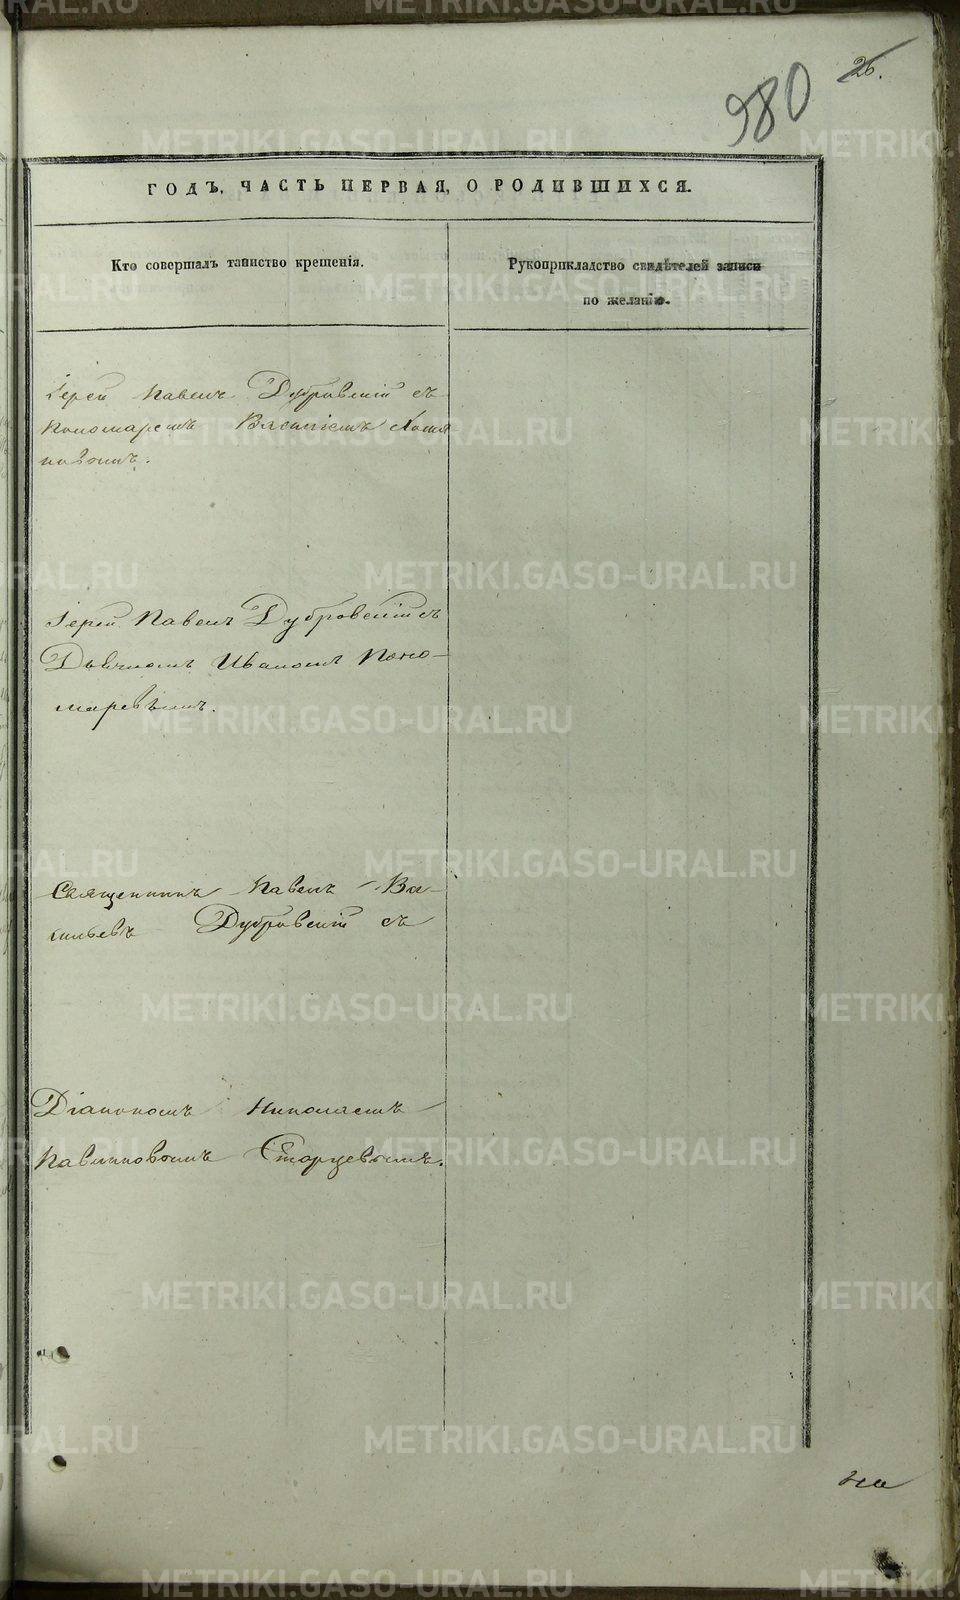 980 26.
ГОДЪ, ЧАСТЬ ПЕРВАЯ, О РОДИВШИХСЯ.
Кто совершалъ таинство крещенія.
Рукоприкладство свидѣтелей записи
по желанію.
Іерей Павелъ Дубровскій съ
Пономаремъ Василіемъ
Іерей Павелъ Дубровскій съ
Дьячкомъ Иваномъ Поно-
маревымъ.
Священникъ Павелъ Ва-
сильевъ Дубровскій съ
Діакономъ Николаемъ
Павлиновымъ Старцевымъ.
на
METRIKI.GASO-URAL.RU